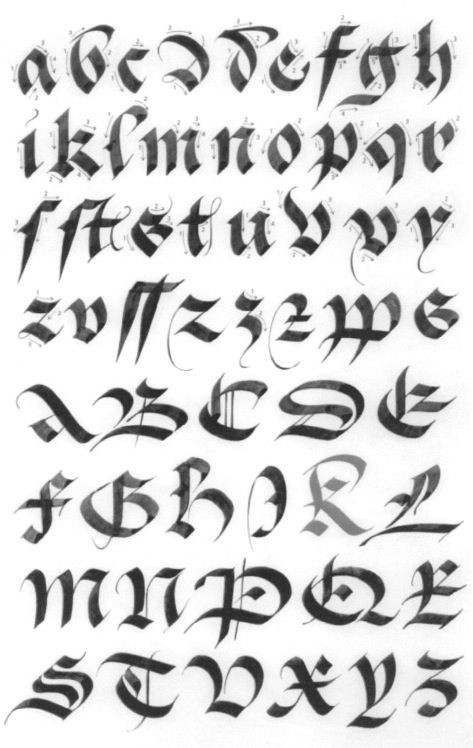 a b c d d e f g h
i k l m n o p q r
ſ ſt s t u v v y
z v ſſ z z w s
A B C D E
F G H I K L
M N P Q R
S T V X Y Z